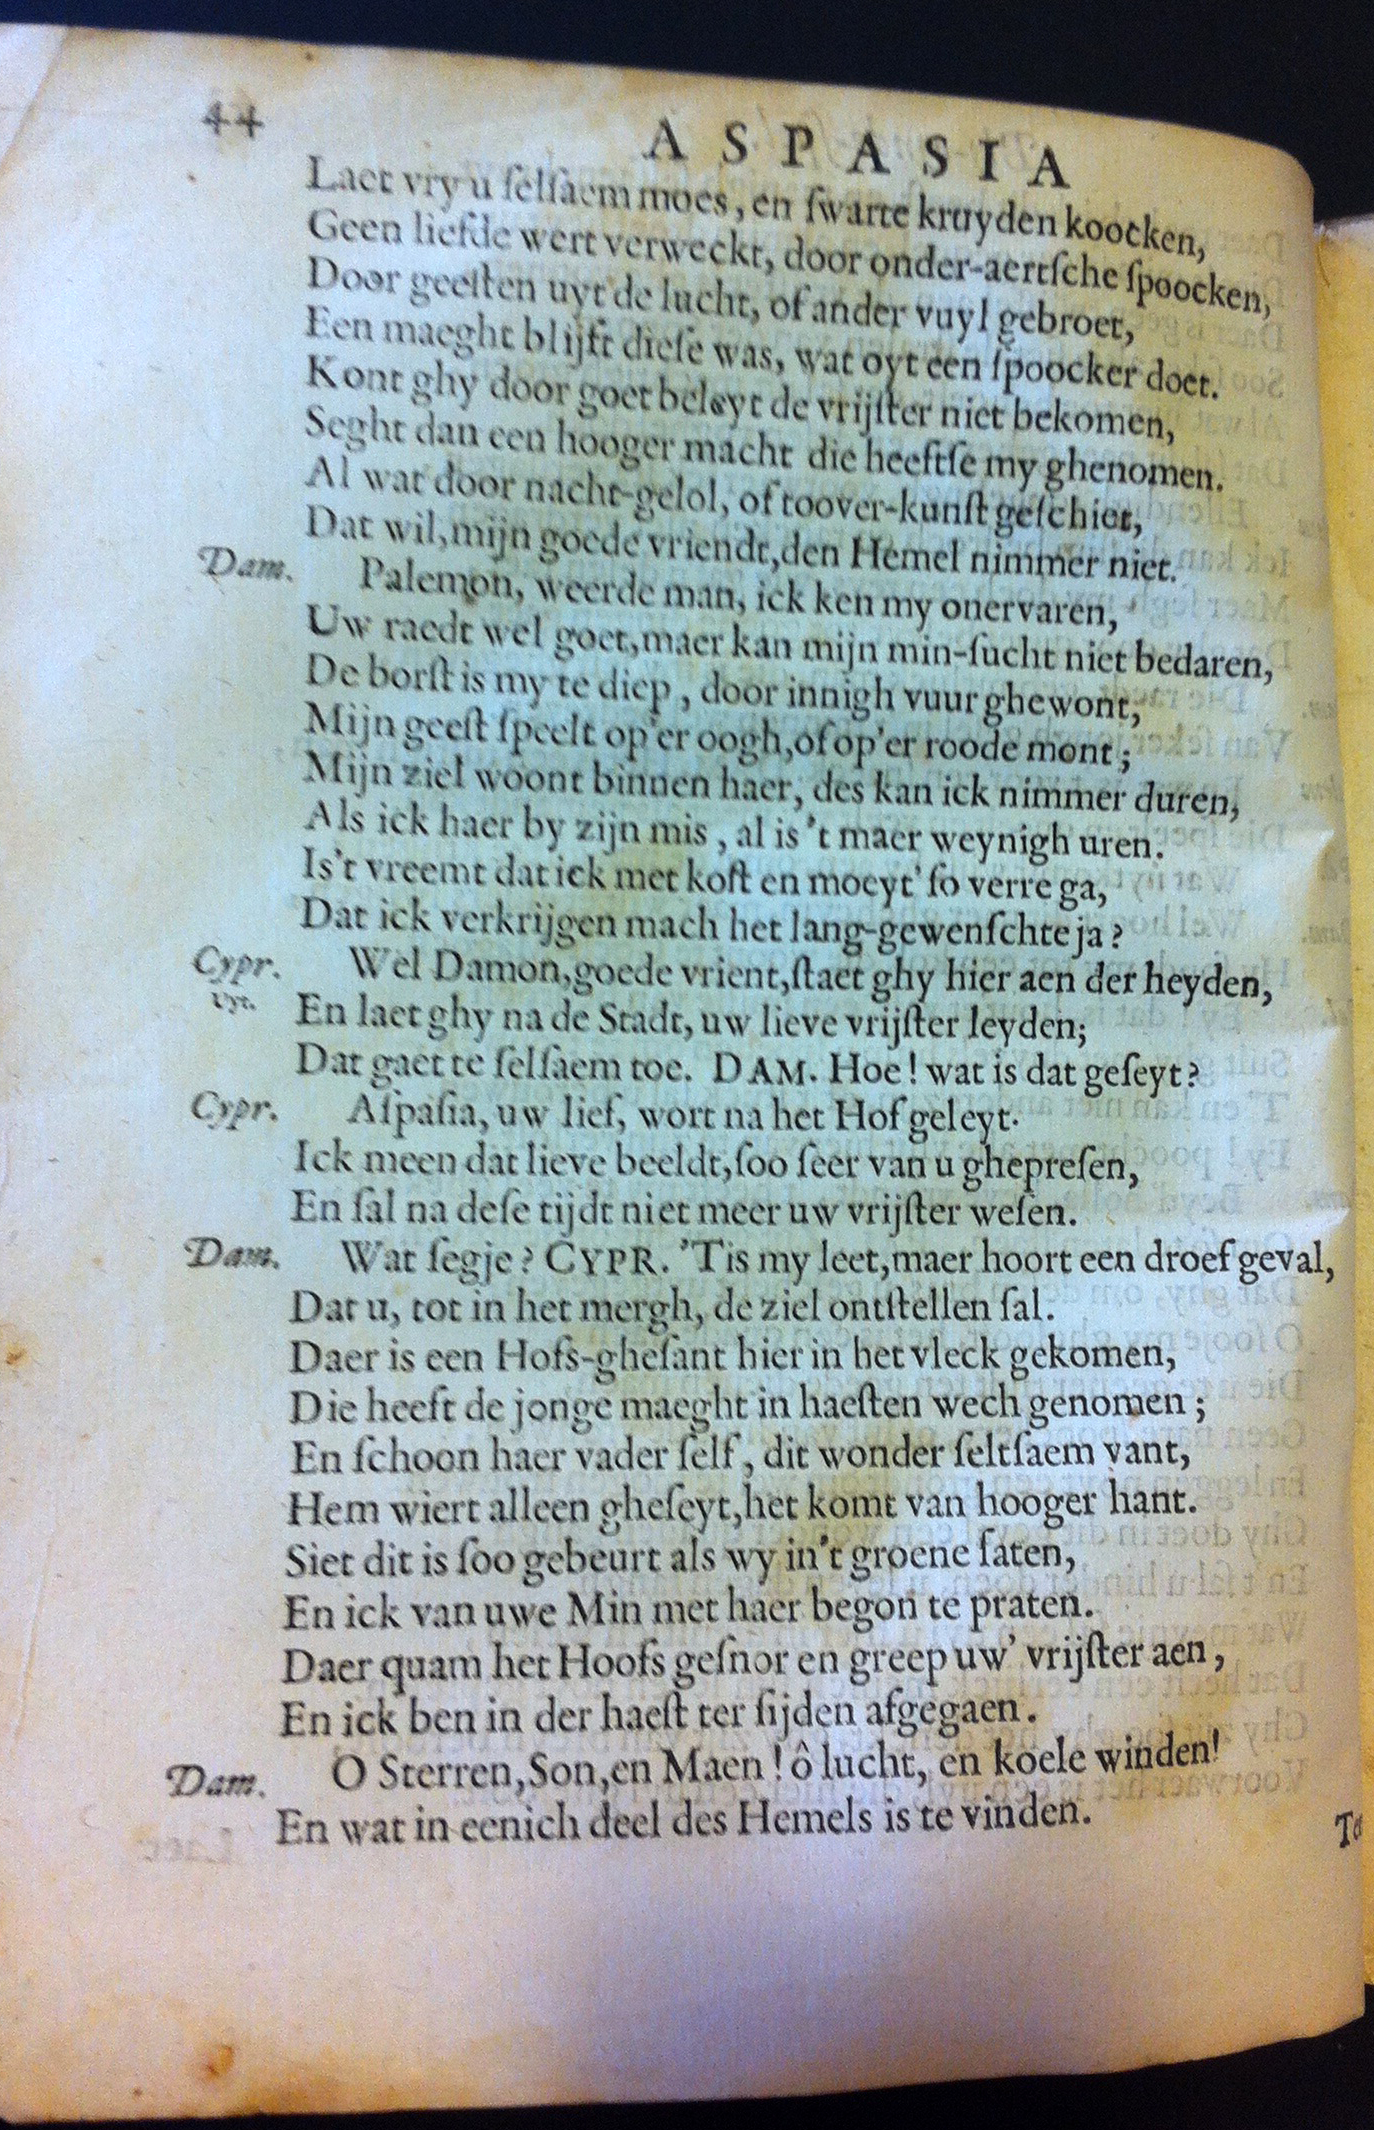 44
ASPASIA
Laet vry u ſelſaem moes, en ſwarte kruyden koocken,
Geen liefde wert verweckt, door onder-aertſche ſpoocken,
Door geeſten uyt de lucht, of ander vuyl gebroet,
Een maeght blijft dieſe was, wat oyt een ſpoocker doet.
Kont ghy door goet beleyt de vrijſter niet bekomen,
Seght dan een hooger macht die heeftſe my ghenomen.
Al wat door nacht-gelol, of toover-kunſt geſchiet,
Dat wil, mijn goede vriendt, den Hemel nimmer niet.
Dam. Palemon, weerde man, ick ken my onervaren,
Uw raedt wel goet, maer kan mijn min-ſucht niet bedaren,
De borſt is my te diep, door innigh vuur ghewont,
Mijn geeſt ſpeelt op'er oogh, of op'er roode mont;
Mijn ziel woont binnen haer, des kan ick nimmer duren,
Als ick haer by zijn mis, al is 't maer weynigh uren.
Is't vreemt dat ick met koſt en moeyt' ſo verre ga,
Dat ick verkrijgen mach het lang-gewenſchte ja?
Cypr. Wel Damon, goede vrient, ſtaet ghy hier aen der heyden,
Uyt. En laet ghy na de Stadt, uw lieve vrijſter leyden;
Dat gaet te ſelſaem toe. DAM. Hoe! wat is dat geſeyt?
Cypr. Aſpaſia, uw lief, wort na het Hof geleyt.
Ick meen dat lieve beeldt, ſoo ſeer van u ghepreſen,
En ſal na deſe tijdt niet meer uw vrijſter weſen.
Dam. Wat ſegje? CYPR. 'Tis my leet, maer hoort een droef geval,
Dat u, tot in het mergh, de ziel ontſtellen ſal.
Daer is een Hofs-gheſant hier in het vleck gekomen,
Die heeft de jonge maeght in haeſten wech genomen;
En ſchoon haer vader ſelf, dit wonder ſeltſaem vant,
Hem wiert alleen gheſeyt, het komt van hooger hant.
Siet dit is ſoo gebeurt als wy in't groene ſaten,
En ick van uwe Min met haer begon te praten.
Daer quam het Hoofs geſnor en greep uw' vrijſter aen,
En ick ben in der haeſt ter ſijden afgegaen.
Dam. O Sterren, Son, en Maen! ô lucht, en koele winden!
En wat in eenich deel des Hemels is te vinden.